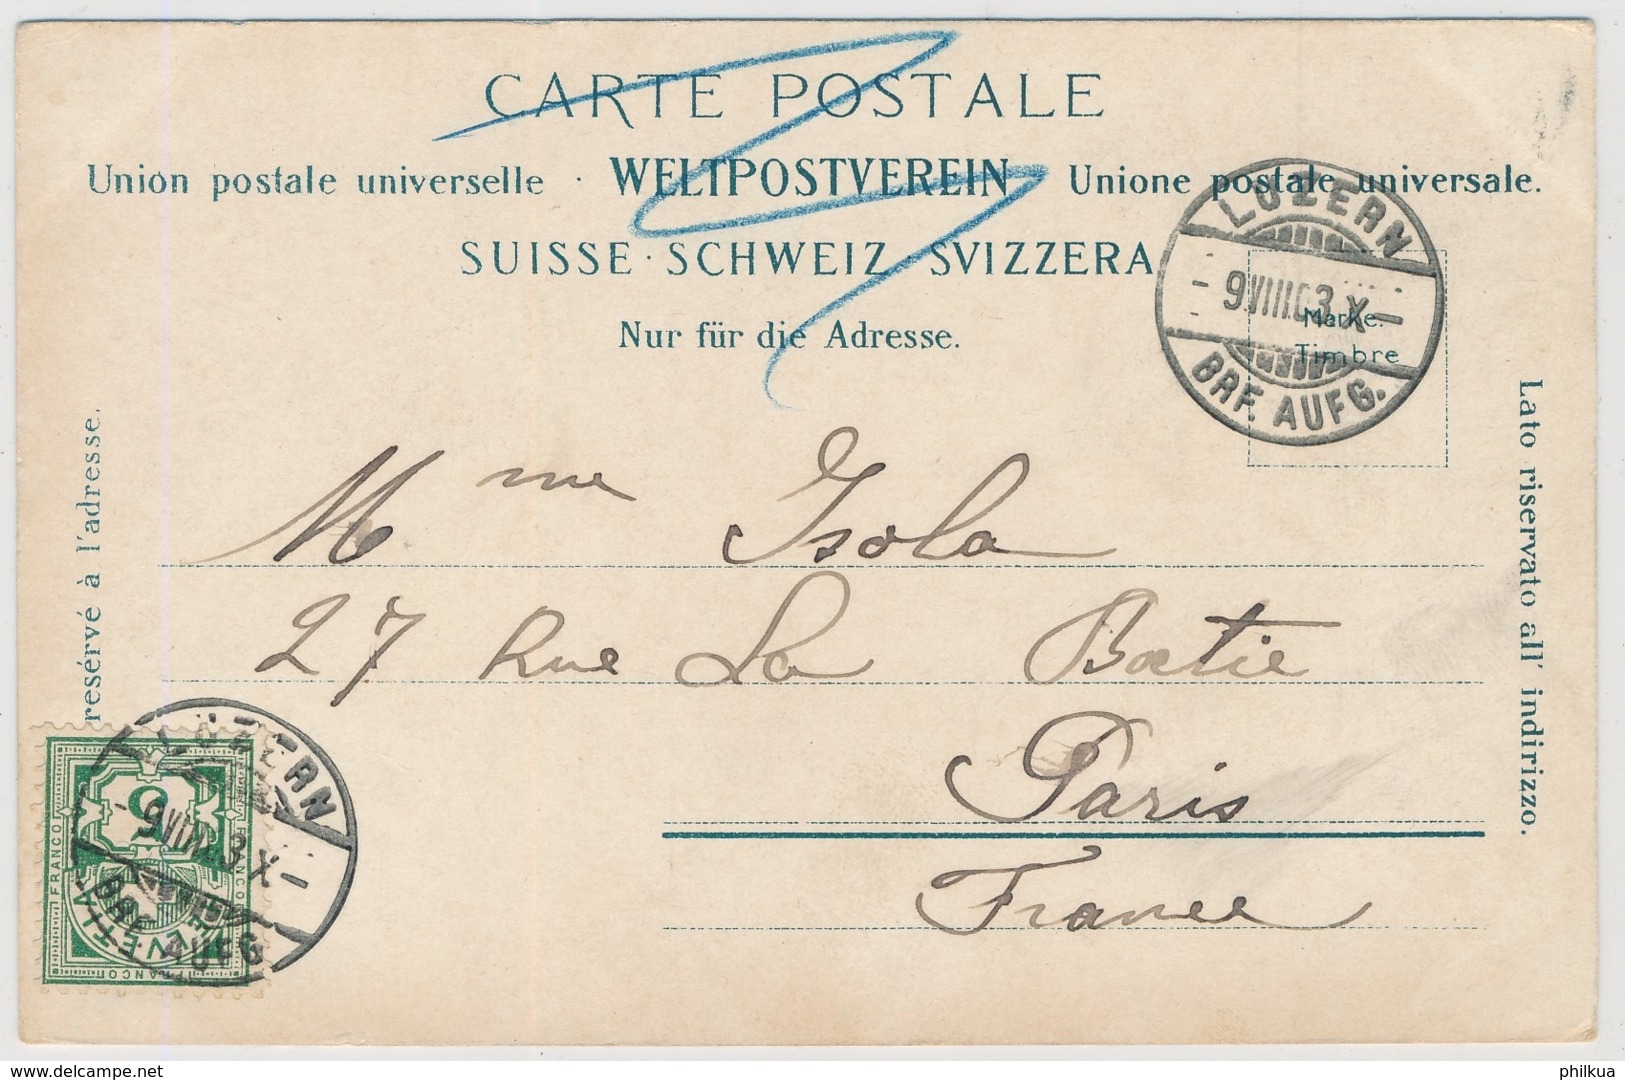 CARTE POSTALE
Union postale universelle · WELTPOSTVEREIN · Unione postale universale.
SUISSE · SCHWEIZ · SVIZZERA
Nur für die Adresse.
LUZERN
- 9.VIII.03.X -
BRF. AUFG.
Marke.
Timbre
resérvé à l'adresse.
Lato riservato all' indirizzo.
Mme Isola
27 Rue La Boetie
Paris
France
LUZERN
- 9.VIII.03.X -
BRF. AUFG.
FRANCO
FRANCO
5
HELVETIA
FRANCO
philkua